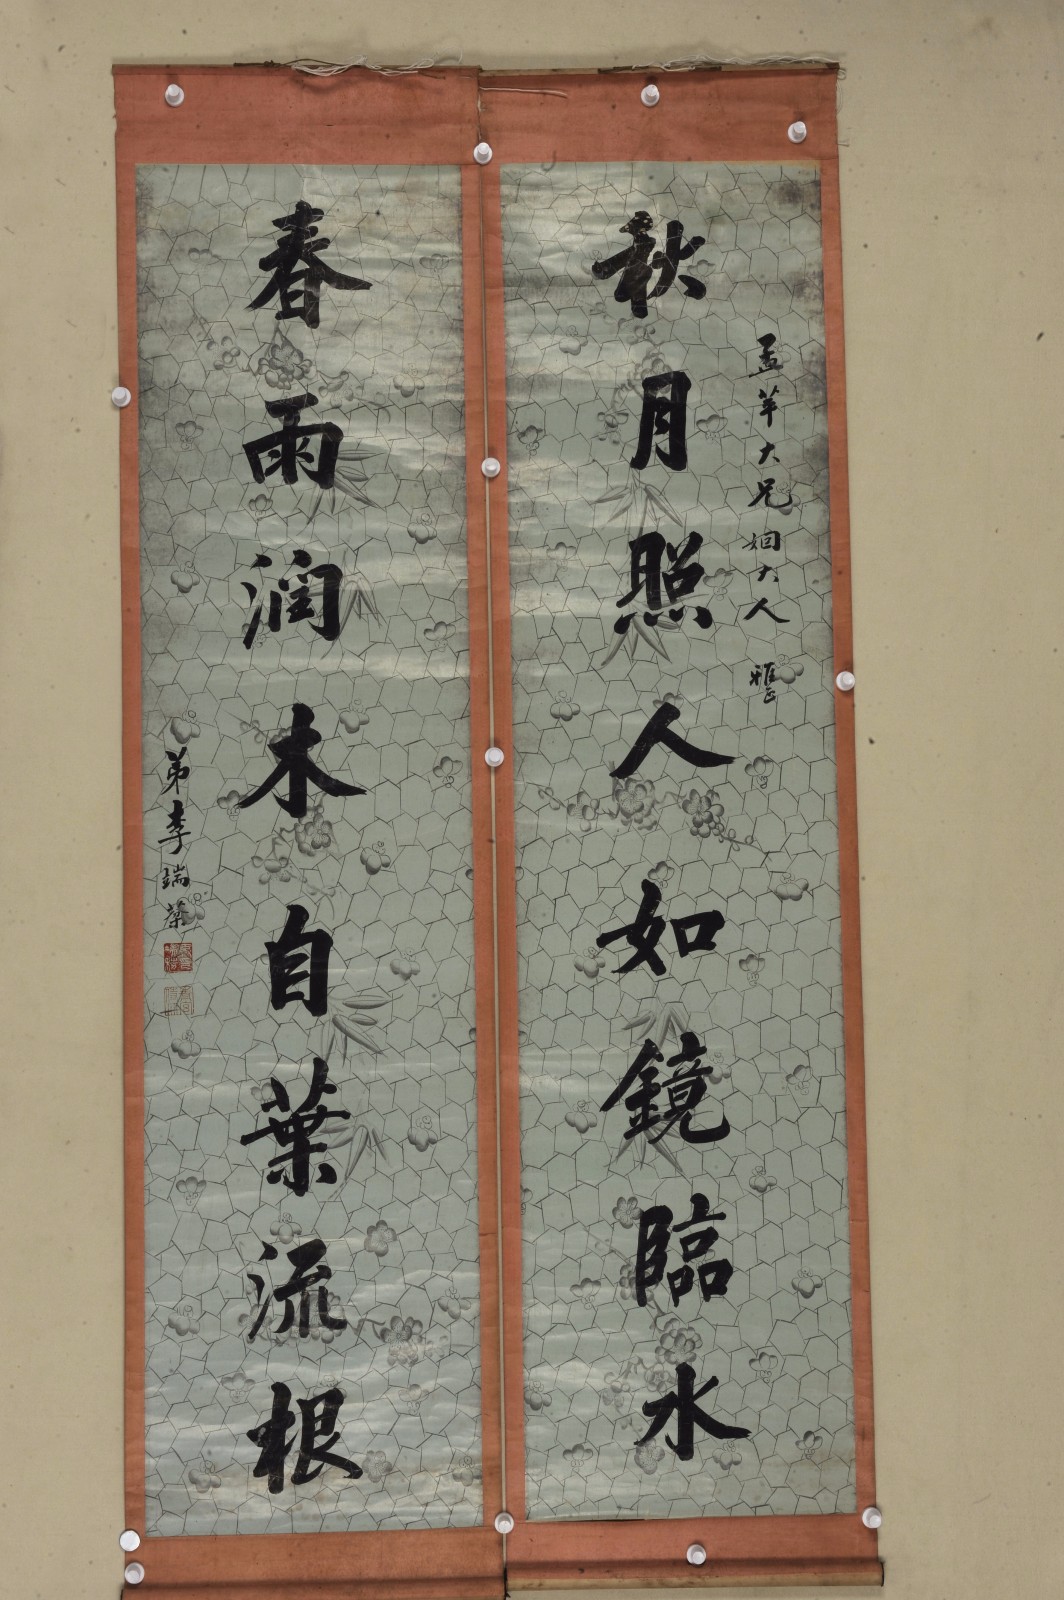 孟苹大兄姻大人 雅正
秋月照人如鏡臨水
春雨潤木自葉流根
弟李瑞棻